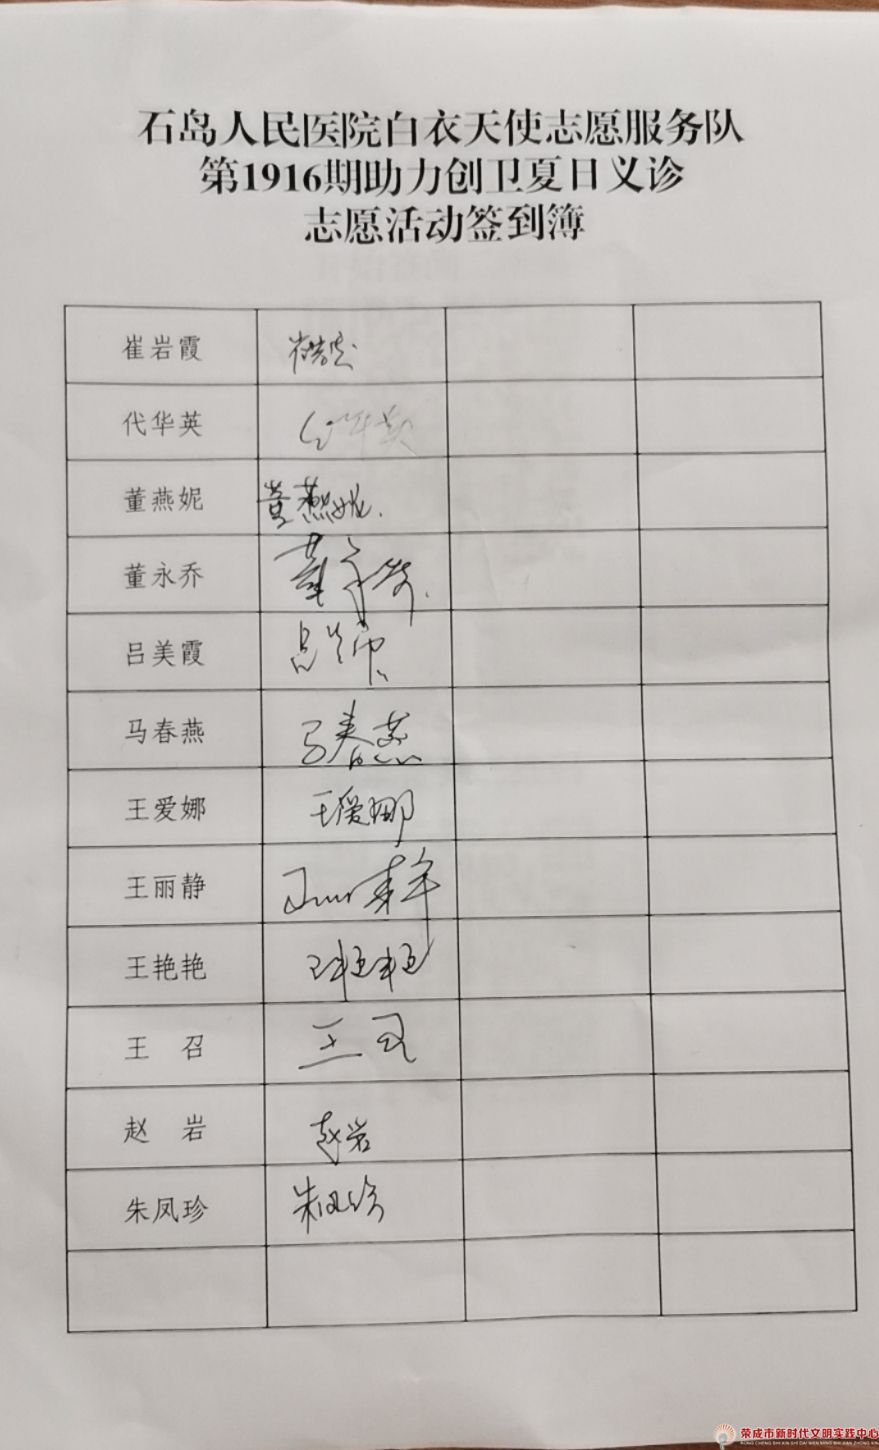 石岛人民医院白衣天使志愿服务队
第1916期助力创卫夏日义诊
志愿活动签到簿
崔岩霞
代华英
董燕妮 董燕妮.
董永乔
吕美霞
马春燕 马春燕
王爱娜 王爱娜
王丽静
王艳艳 王艳艳
王 召
赵 岩 赵岩
朱凤珍 朱凤珍
荣成市新时代文明实践中心
RONG CHENG SHI XIN SHI DAI WEN MING SHI JIAN ZHONG XIN